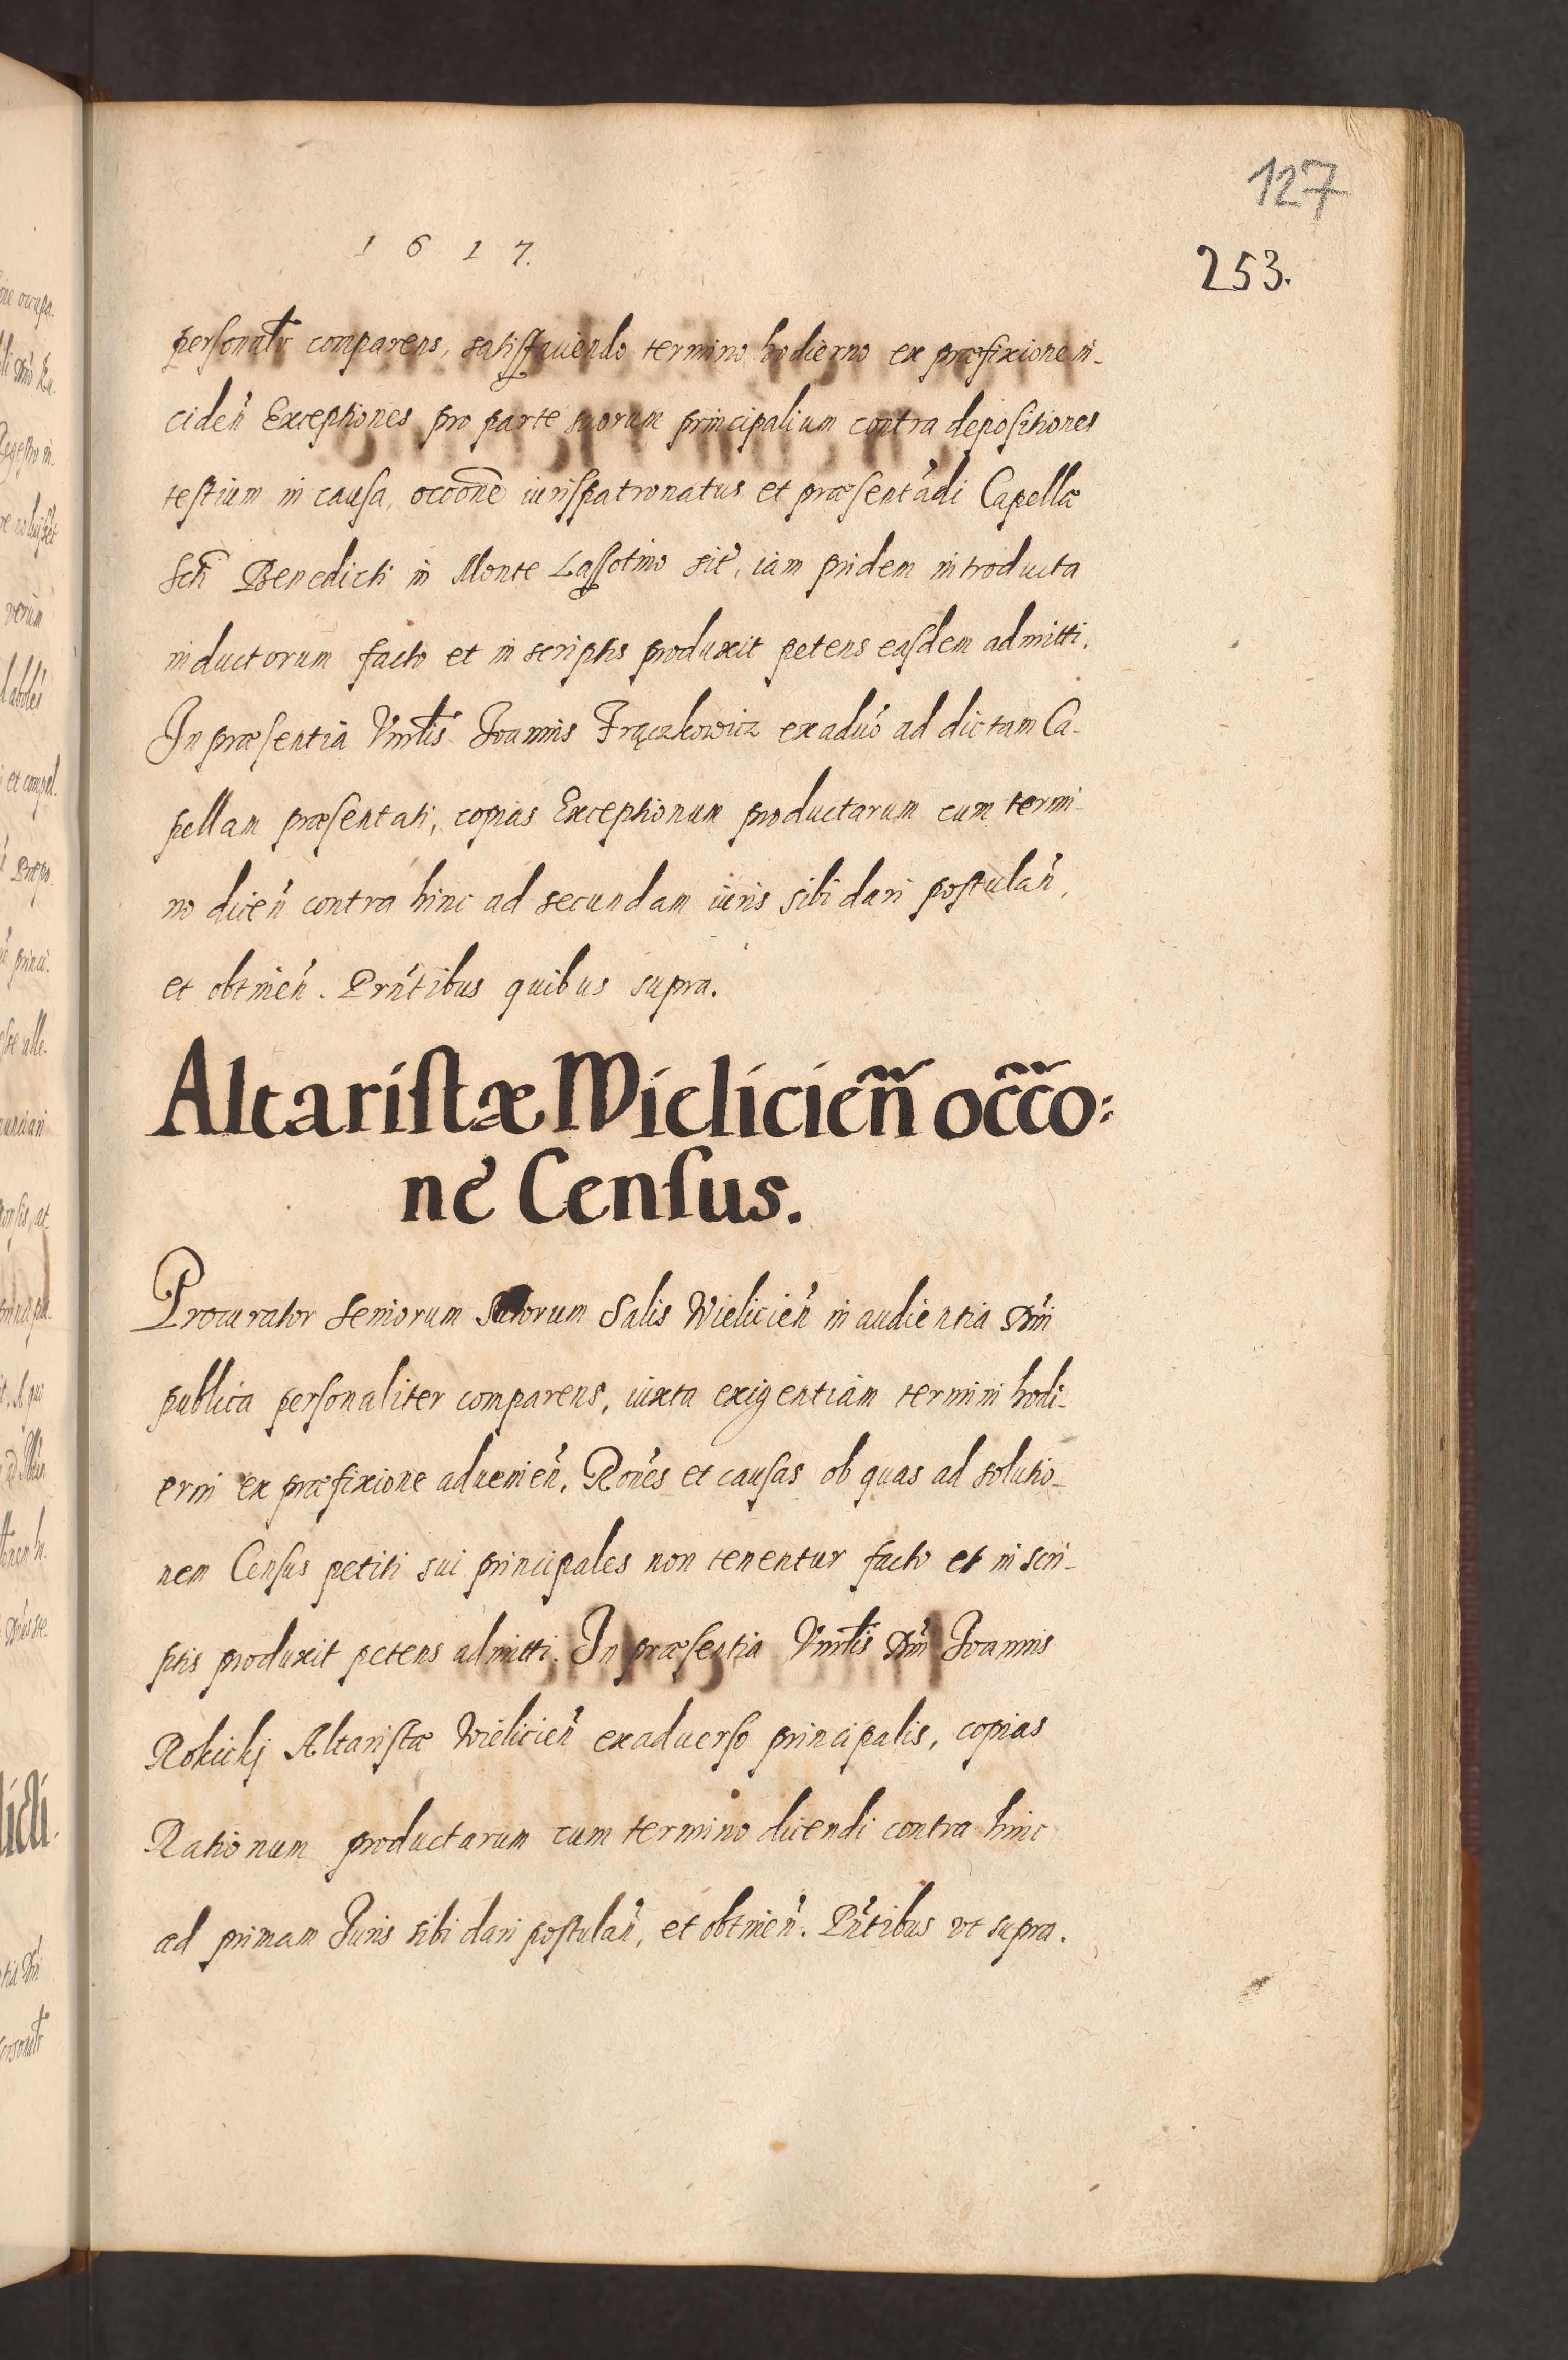 127
1617.
253.
personalr comparens, satisffaciendo termino hodierno ex præfixione in-
ciden̄ Exceptiones pro parte suorum principalium contra depositiones
testium in causa, occōne iurispatronatus et præsentādi Capellæ
Scti Benedicti in Monte Lassotino sit̄, iam pridem introducta
inductorum facto et in scriptis produxit petens easdem admitti.
In præsentia Vnrlis Joannis Frączkowicz exaduō ad dictam Ca-
pellam præsentati, copias Exceptionum productarum cum termi-
no dicen̄ contra hinc ad secundam iuris sibi dari postulan̄,
et obtinen̄. Prn̄tibus quibus supra.
Altaristæ Wielicien̄ occo:
nē Census.
Procurator Seniorum Salis Wielicien̄ in audientia Dn̄i
publica personaliter comparens, iuxta exigentiam termini hodi-
erni ex præfixione aduenien̄. Rōnes et causas ob quas ad solutio-
nem Census petiti sui principales non tenentur facto et in scri-
ptis produxit petens admitti. In præsentia Vnrlis Dn̄i Joannis
Rokickj Altaristæ Wielicien̄ exaduerso principalis, copias
Rationum productarum cum termino dicendi contra hinc
ad primam Juris sibi dari postulan̄, et obtinen̄. Pn̄tibus vt supra.